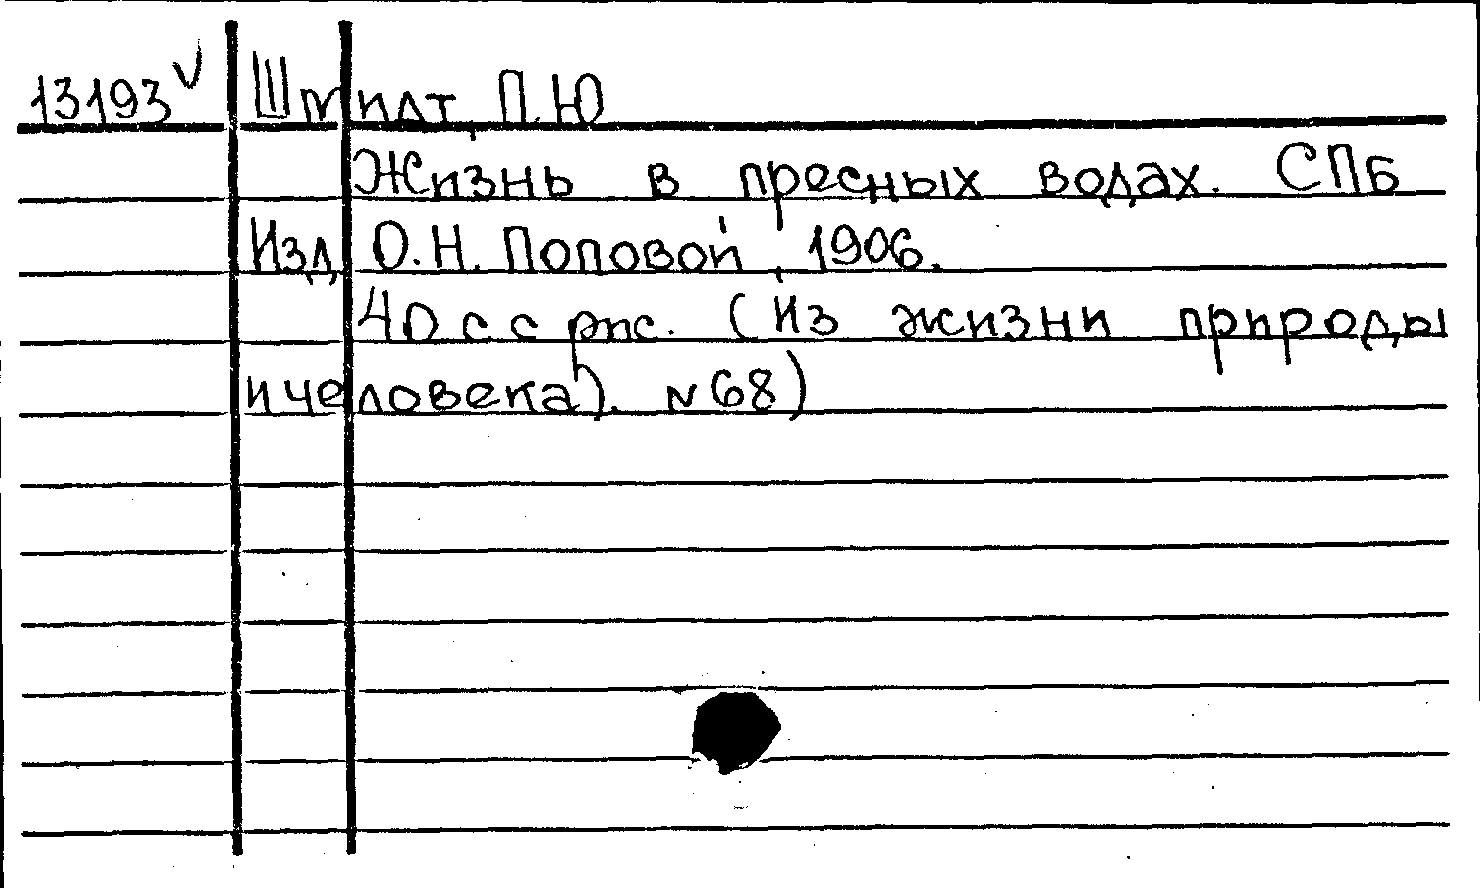 13193 v Шмидт, П.Ю
Жизнь в пресных водах. СПБ
Изд О.Н. Поповой, 1906.
40 с с рис. (Из жизни природы
и человека). N 68)